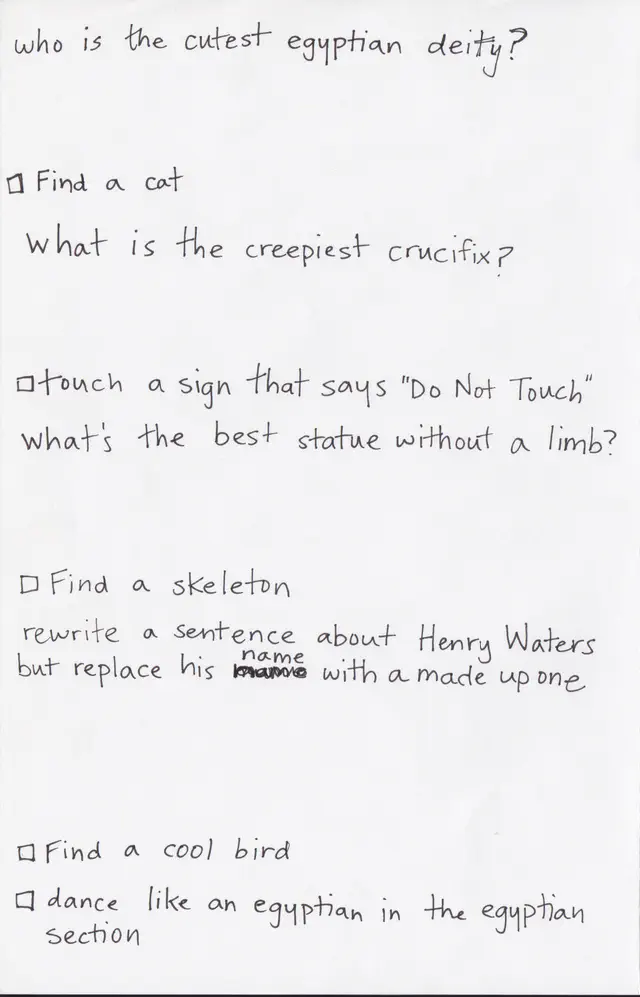 who is the cutest egyptian deity?
Find a cat
What is the creepiest crucifix?
touch a sign that says "Do Not Touch"
what's the best statue without a limb?
Find a skeleton
rewrite a sentence about Henry Waters
name
but replace his with a made up one
Find a cool bird
dance like an egyptian in the egyptian
section